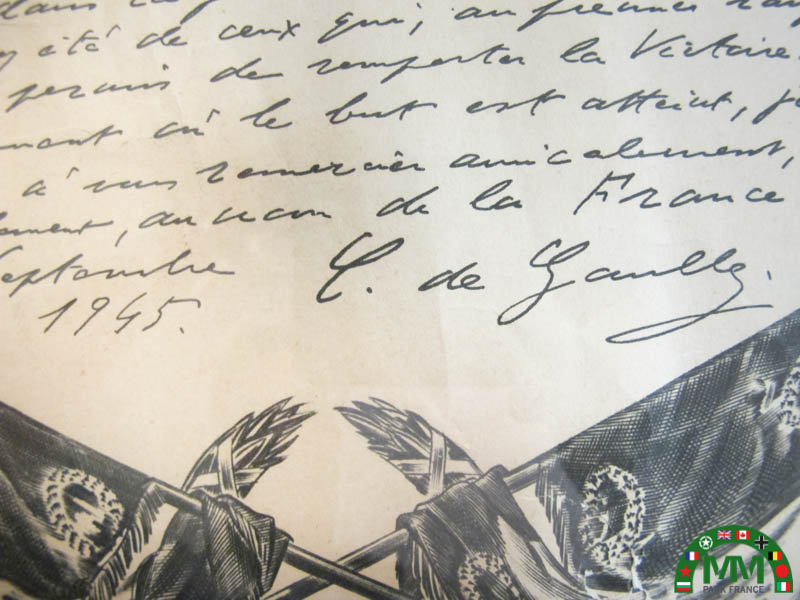 dans
été de ceux qui, au premier rang
permis de remporter la Victoire.
où le but est atteint,
à vous remercier amicalement,
au nom de la France
Septembre C. de Gaulle.
1945.
MM
PARK FRANCE